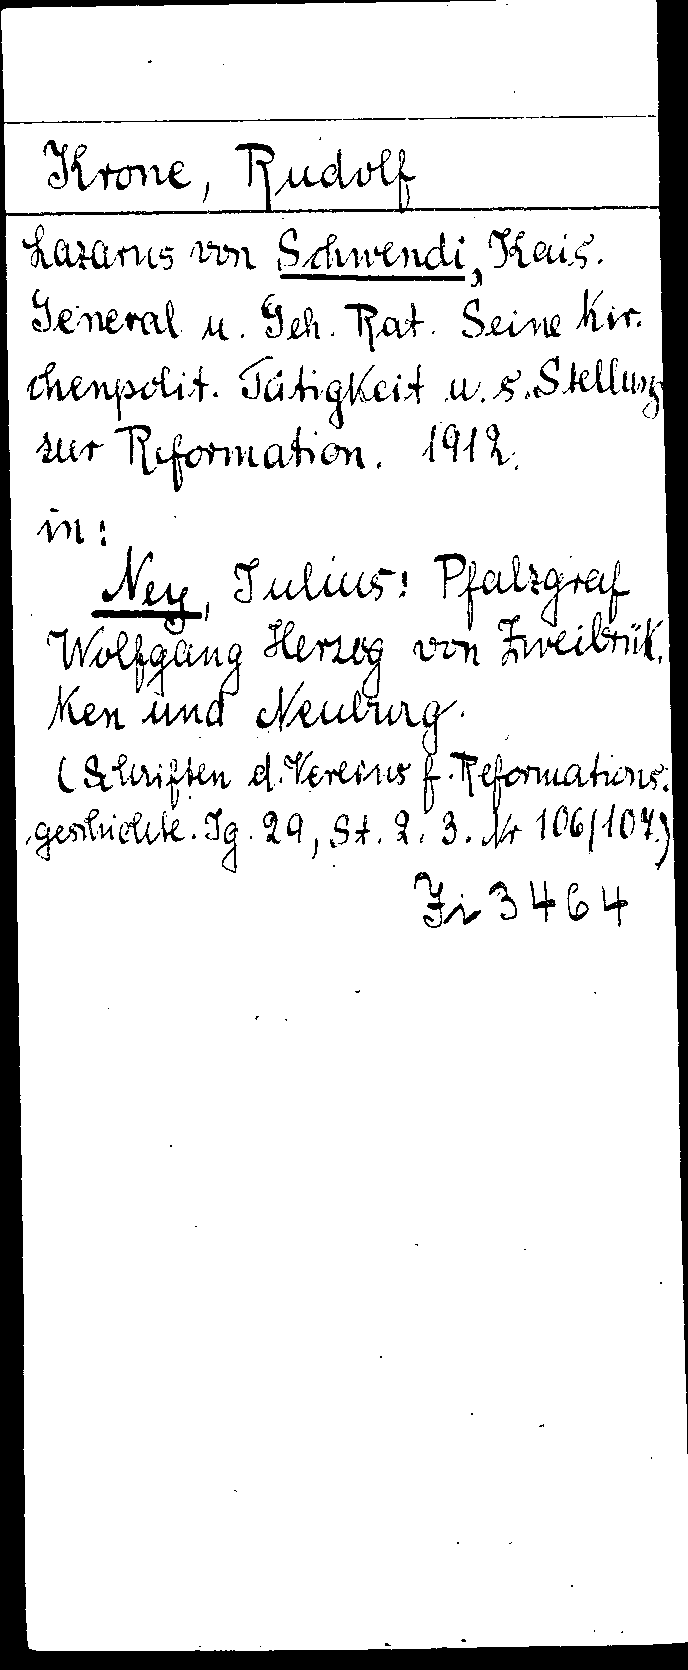 Krone, Rudolf
Lazarus von Schwendi, Kais.
General u. Geh. Rat. Seine Kir-
chenpolit. Tätigkeit u. s. Stellung
zur Reformation. 1912.
in:
Ney, Julius: Pfalzgraf
Wolfgang Herzog von Zweibrük-
ken und Neuburg.
(Schriften d. Vereins f. Reformations-
geschichte. Jg. 29, St. 2. 3. Nr 106/107.)
Zi 3464